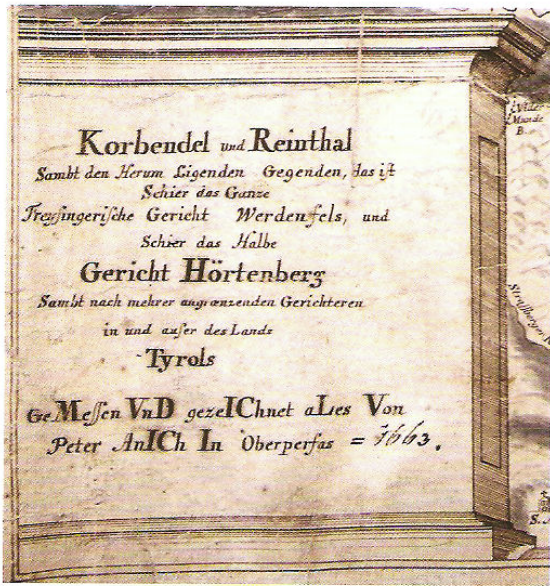 Korbendel und Reinthal
Sambt den Herum Ligenden Gegenden, das ist
Schier das Ganze
Freysingerische Gericht Werdenfels, und
Schier das Halbe
Gericht Hörtenberg
Sambt nach mehrer angrænzenden Gerichteren
in und auser des Lands
Tyrols
GeMessen VnD gezeICHnet aLles Von
Peter AnICh In Oberperfas = 1663.
Munde
B.
Strassberger
S.